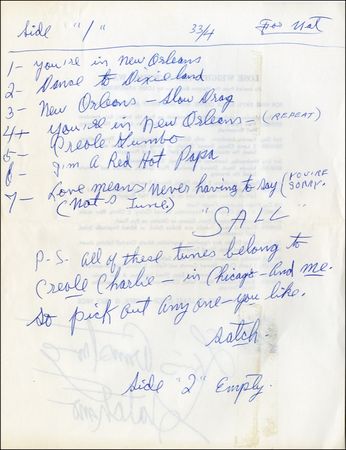 Side "1" 33/4 For Nat
1- You're in New Orleans
2- Danse to Dixieland
3- New Orleans - Slow Drag
4+ You're in New Orleans - (REPEAT)
5- Creole Gumbo
6- I'm a Red Hot Papa
7- Love means never having to say (YOU'RE SORRY.
(Nat's Tune)
"S'ALL"
P.S. all of these tunes belong to
Creole Charlie - in Chicago - And me.
So pick out any one - you like.
Satch.
Side "2" Empty.
Louis Armstrong
Satchmo